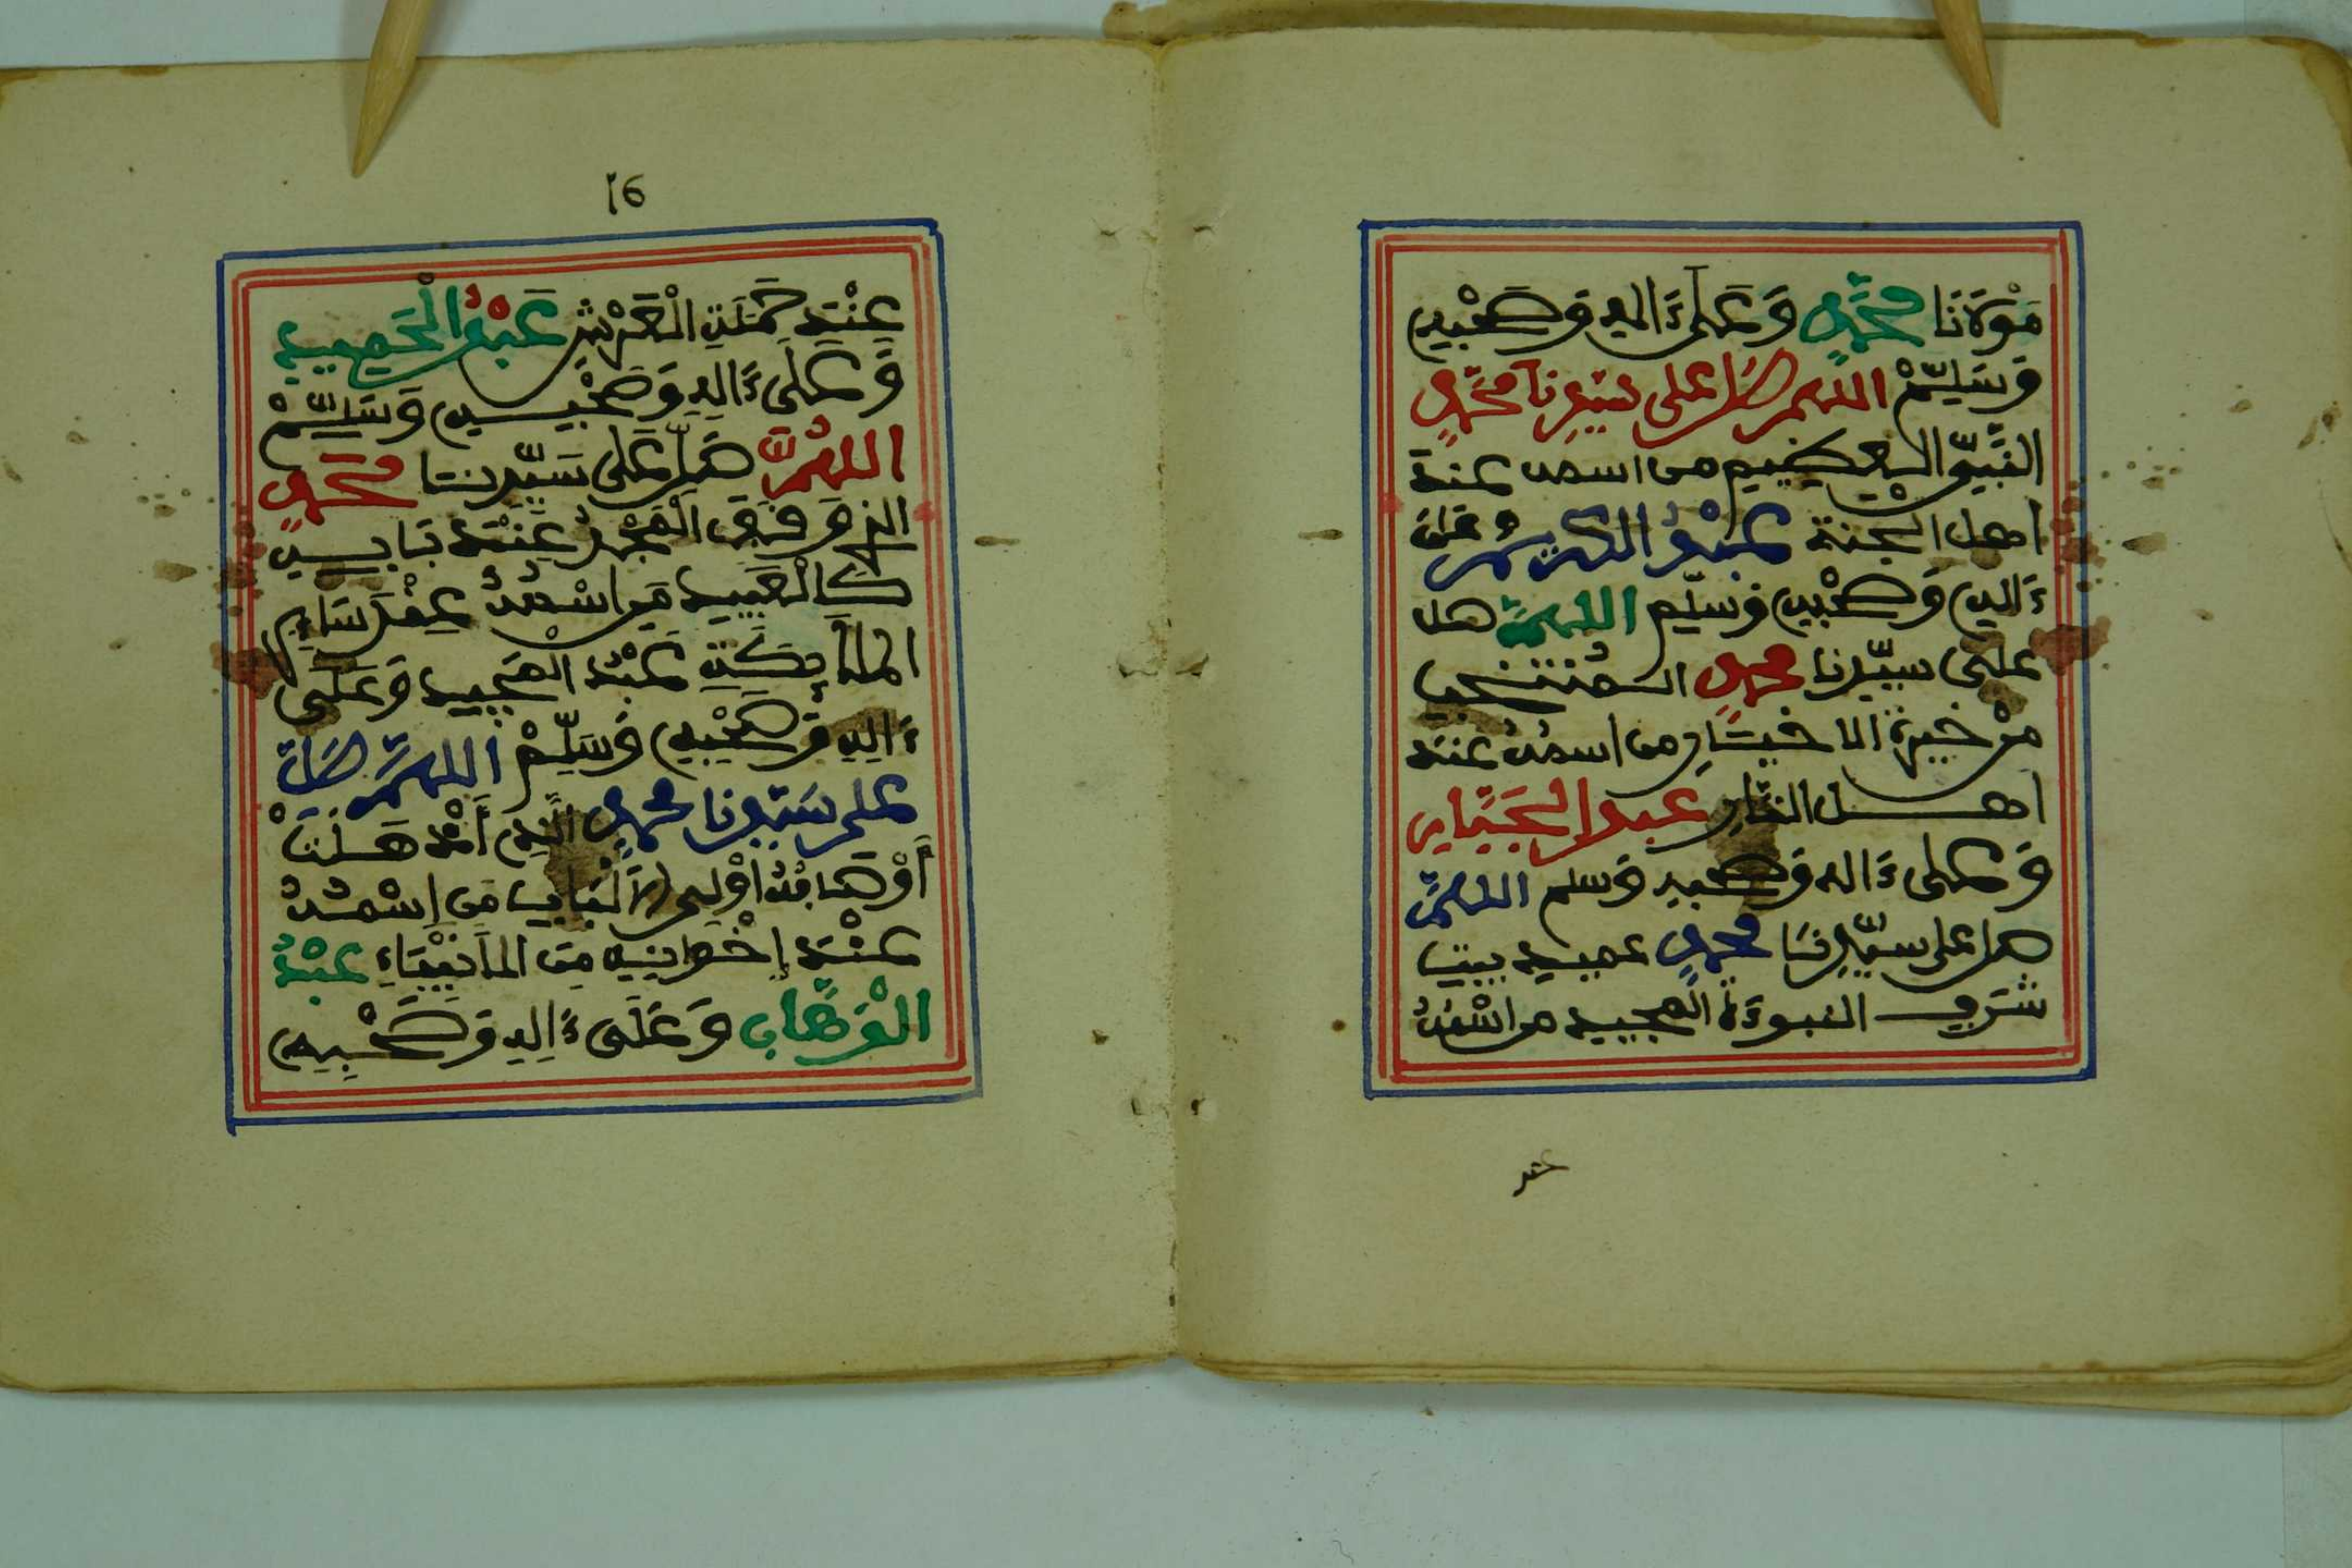 مَوْلَانَا مُحَمَّدٍ وَعَلَىٰ ءَالِهِ وَصَحْبِهِ
وَسَلِّمْ اللهم صَلِّ على سَيِّدِنا مُحَمَّدٍ
النَّبِيِّ العظيم من اسمه عند
اهل الجنة عَبْدُ الكريم وعلى
ءَالِهِ وَصَحْبِهِ وسلّم اللهمَّ صل
على سيّدنا محمد المنتخب
مِنْ خيرة الاخيَارِ من اسمهُ عند
اهل النَّارِ عبد الجَبَّارِ
وَعلى ءَاله وصحبه وسلم اللهمَّ
صل على سيّدِنَا محمدٍ عميد بيت
شَرَفِ النبوءة المجيد من اسْمُهُ
عند
16
عِنْدَ حَمَلَةِ الْعَرْشِ عَبْدُ الْحَمِيدِ
وَعَلَىٰ ءَالِهِ وَصَحْبِهِ وَسَلِّمْ
اللهُمَّ صَلِّ عَلى سَيِّدِنا مُحَمَّدٍ
الذي وقف الْمَجْدُ عِنْدَ بَابِهِ
كَالْعَبِيدِ مَنِ اسْمُهُ عِنْدَ سَائِرِ
الملائِكَةِ عَبْدُ الْمَجِيدِ وَعَلَى
ءَالِهِ وَصَحْبِهِ وَسَلِّمْ اللهمَّ صَلِّ
على سَيِّدِنا محمدٍ الَّذِي أَذْهَلَتْ
أَوْصَافُهُ أُوْلِي الْأَلْبَابِ مَنِ اِسْمُهُ
عِنْدَ إِخْوَانِهِ مِنَ الْأَنْبِيَاءِ عَبْدُ
الْوَهَّابِ وَعَلَى ءَالِهِ وَصَحْبِهِ